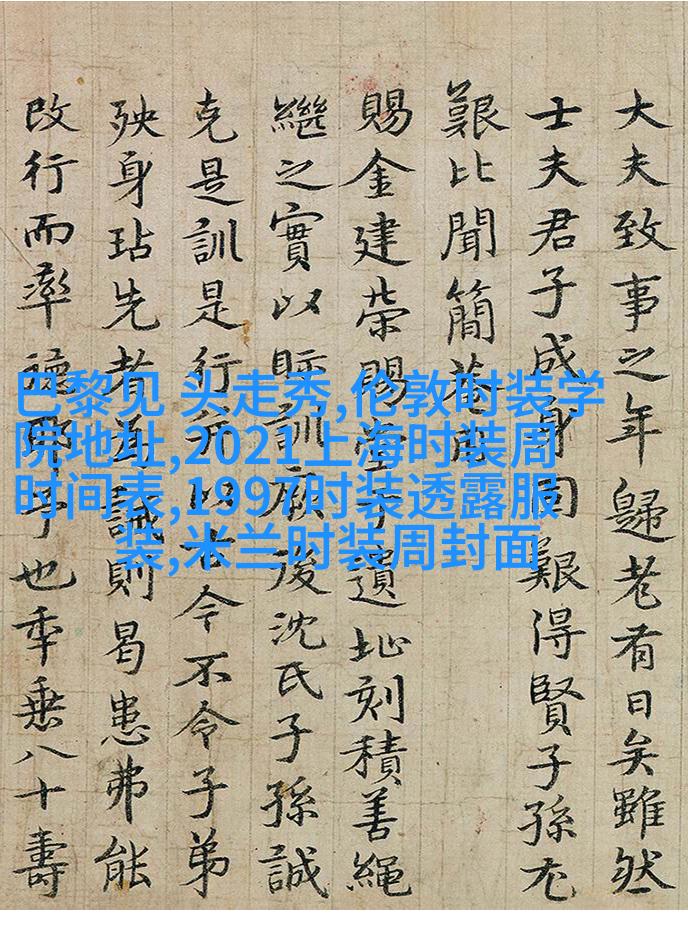 大夫致事之年歸老有日矣雖然
士夫君子成身固艱得賢子孫尤
艱比聞簡菴
賜金建荣賜堂于遺址刻積善繩
繼之實以貽訓厥後沈氏子孫誠
克是訓是行以古今不令子弟
殃身玷先者為誡則曷患弗能
改行而率德耶予也年垂八十壽
巴黎见 头走秀,伦敦时装学
院地址,2021上海时装周
时间表,1997时装透露服
装,米兰时装周封面